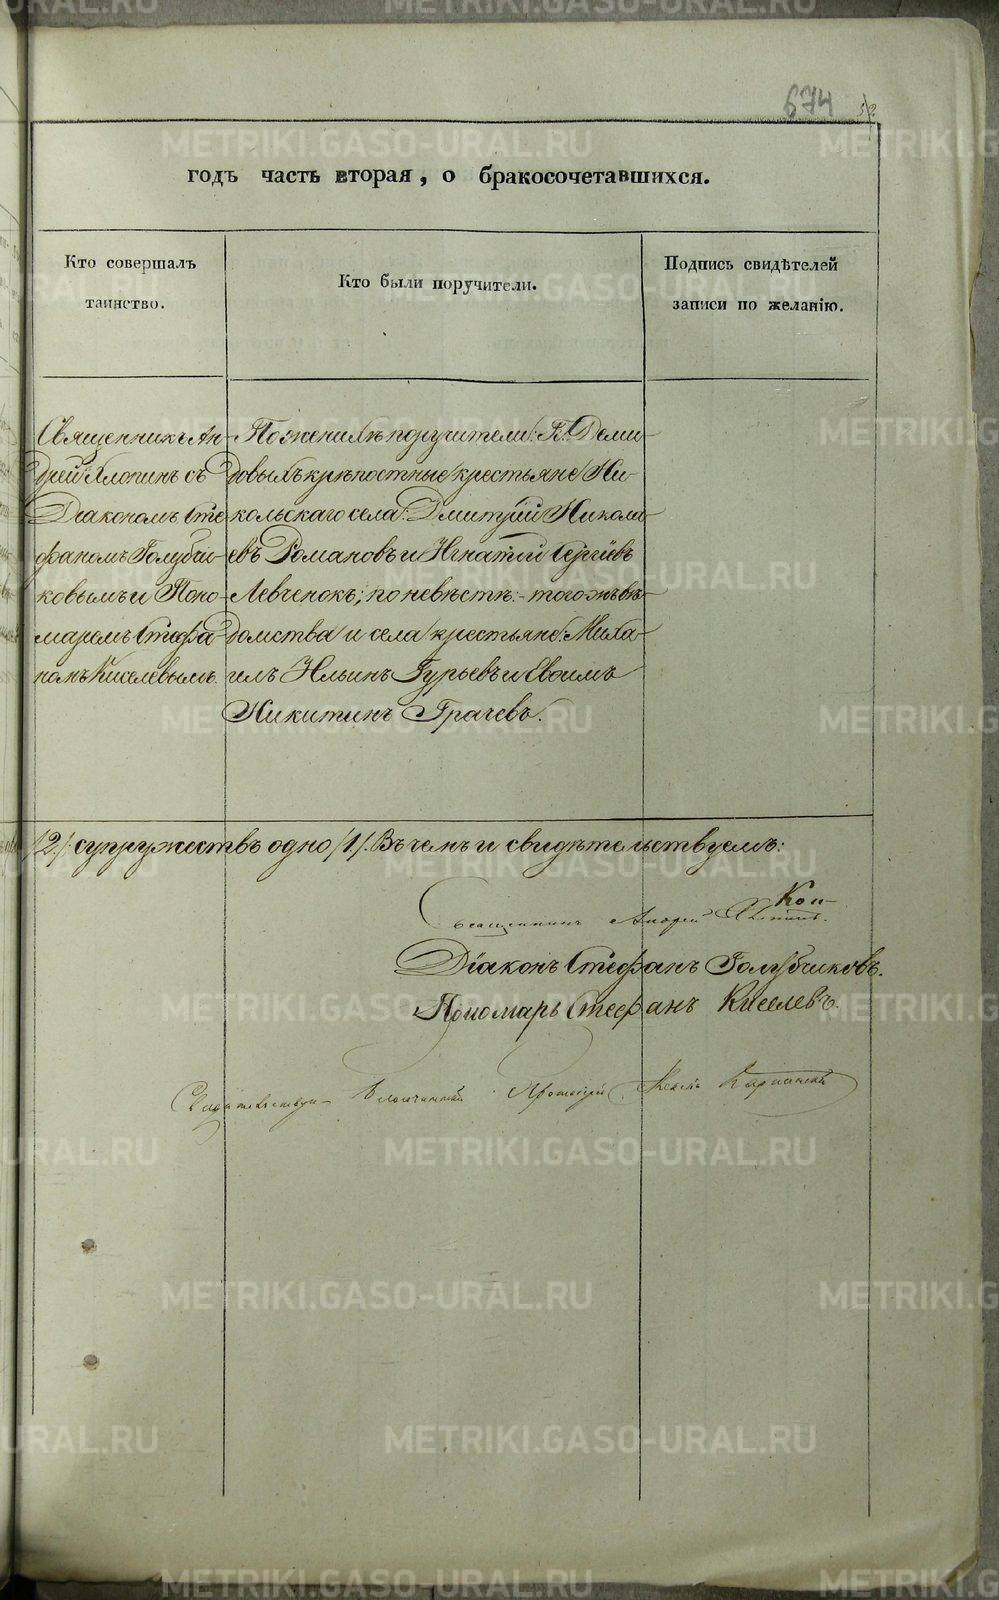 674
52
годъ часть вторая, о бракосочетавшихся.
Кто совершалъ
таинство.
Кто были поручители.
Подпись свидѣтелей
записи по желанію.
Священникъ Ан-
дрей Хлопинъ съ
Діакономъ Сте
фаномъ Голубчи-
ковымъ и Поно-
маремъ Стефа-
номъ Киселевымъ.
По женихѣ поручители: Г. Деми-
довыхъ крѣпостные крестьяне Ни-
кольскаго села: Дмитрій Никола-
евъ Романовъ и Игнатій Сергіевъ
Левченокъ; по невѣстѣ:- того жъ вѣ-
домства и села крестьяне: Миха-
илъ Ильинъ Гурьевъ и Евѳимъ
Никитинъ Грачевъ.
/2/: супружествъ одно /1/. Въ чемъ и свидѣтельствуемъ:
Священникъ Андрей Хлопинъ.
Діаконъ Стефанъ Голубчиковъ.
Пономарь Стефанъ Киселевъ.
Благочинный Протоіерей
METRIKI.GASO-URAL.RU